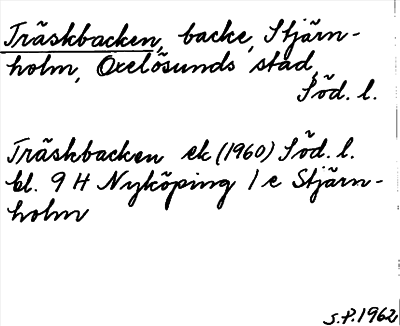 Träskbacken, backe, Stjärn-
holm, Oxelösunds stad,
Söd. l.
Träskbacken ek (1960) Söd. l.
bl. 9 H Nyköping 1 e Stjärn-
holm
S.P. 1962